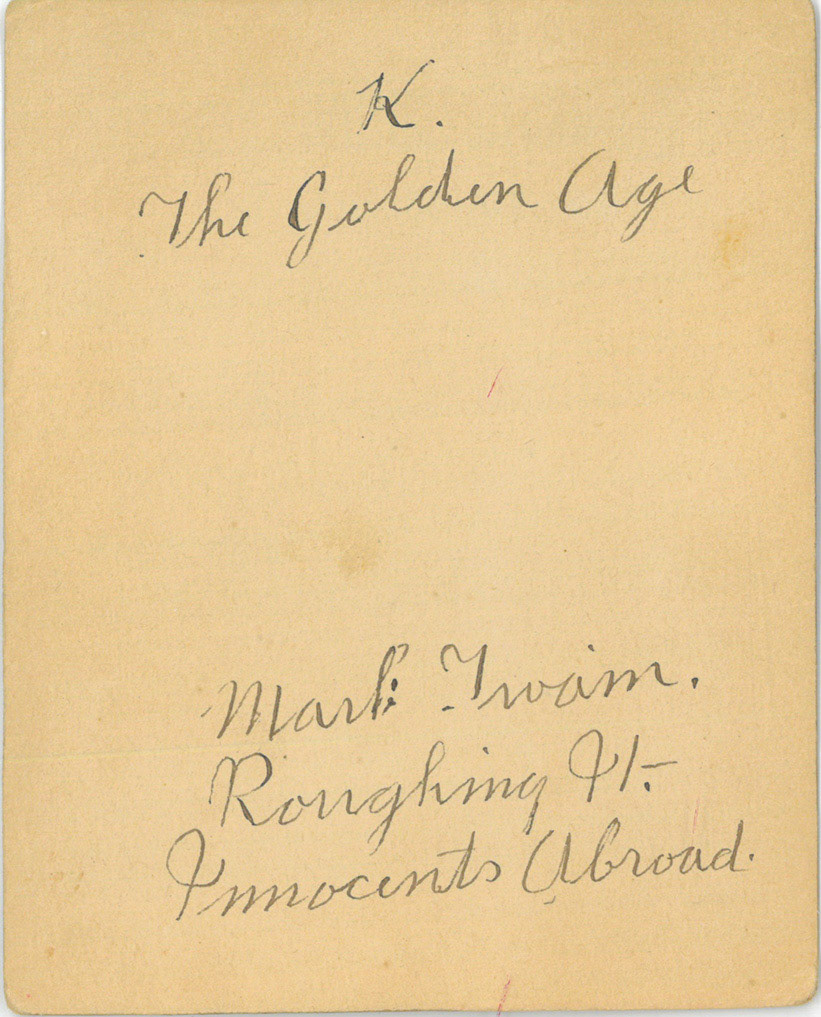 K.
The Golden Age
Mark Twain.
Roughing It.
Innocents Abroad.